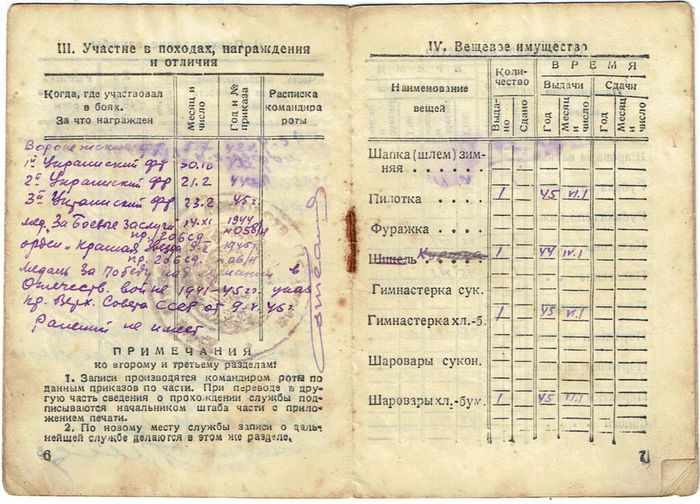 III. Участие в походах, награждения
и отличия
Когда, где участвовал
в боях.
За что награжден
Месяц и
число
Год и №
приказа
Расписка
командира
роты
Воронежский фр 5.7 42 г.
1й Украинский фр 30.10
2й Украинский фр 21.2 44
3й Украинский фр 23.2 45 г.
мед. За Боевые заслуги 14.XI 1944
пр. 2 обсд № 058/н
орден "Красная звезда" 1945 г.
пр. 2 обсд
Медаль За Победу над Германией в
Отечеств. войне 1941-45 гг. указ
пр. Верх. Совета СССР от 9.V.45 г.
Ранений не имеет
ПРИМЕЧАНИЯ
ко второму и третьему разделам:
1. Записи производятся командиром роты по
данным приказов по части. При переводе в дру-
гую часть сведения о прохождении службы под-
писываются начальником штаба части с прило-
жением печати.
2. По новому месту службы записи о даль-
нейшей службе делаются в этом же разделе.
6
IV. Вещевое имущество
Наименование
вещей
Коли-
чество
ВРЕМЯ
Выдачи
Сдачи
Выда-
но
Сдано
Год
Месяц
и число
Год
Месяц
и число
Шапка (шлем) зим-
няя
Пилотка 1 45 VI.1
Фуражка
Шинель Куртка 1 44 IV.1
Гимнастерка сук.
Гимнастерка хл.-б. 1 45 VI.1
Шаровары сукон.
Шаровары хл.-бум. 1 45 VI.1
7